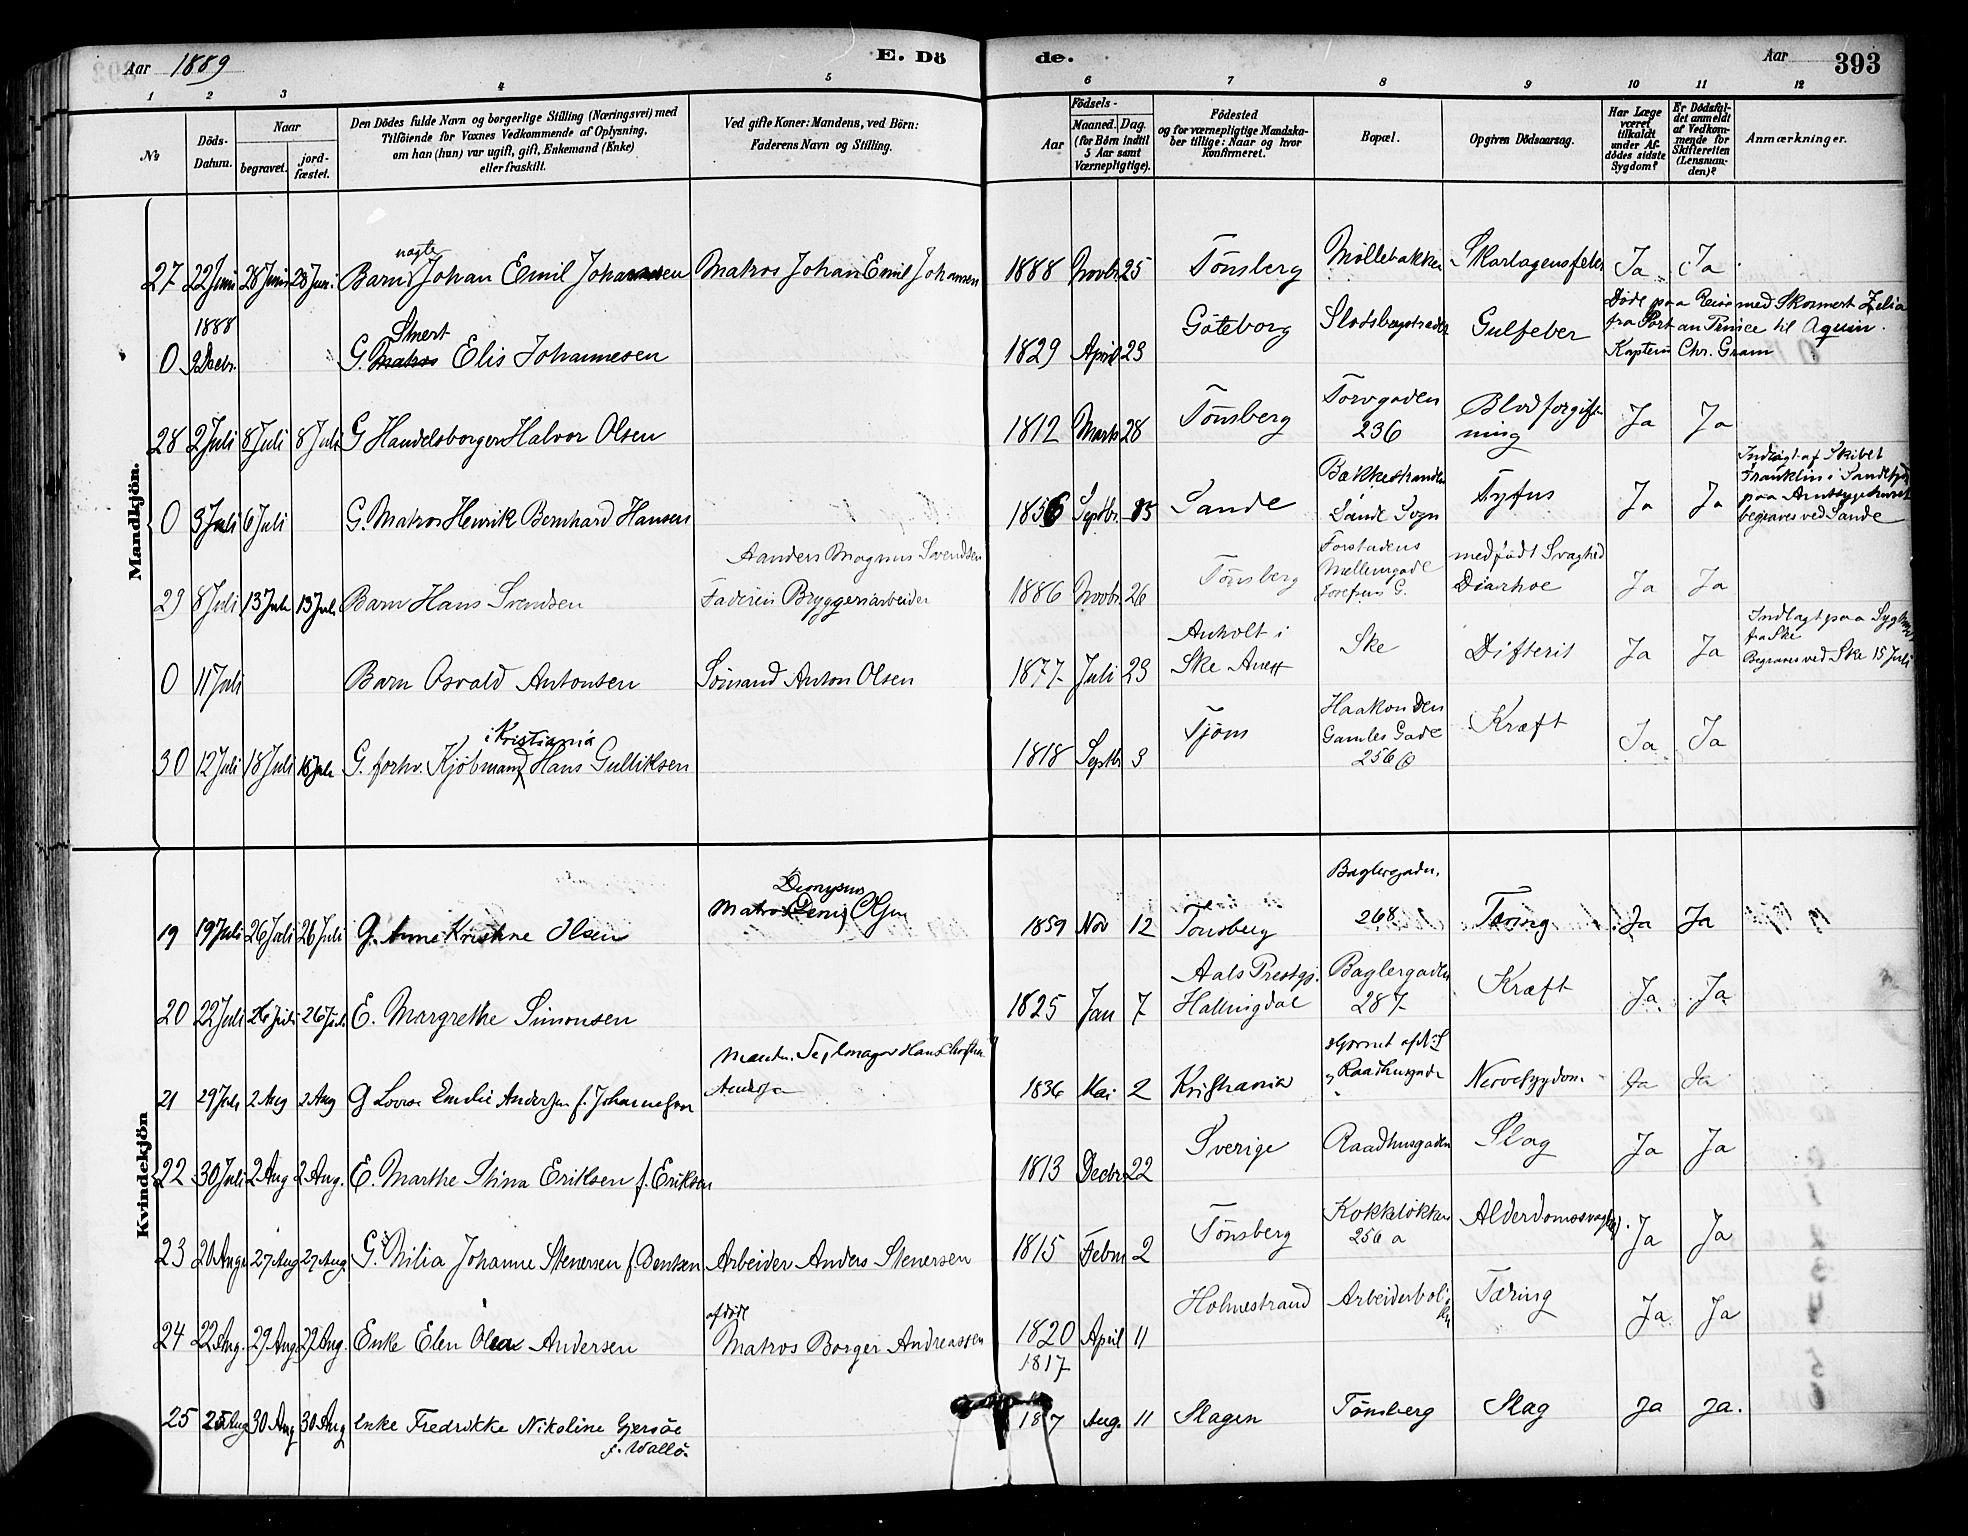 Aar 1889
E. Dö
de.
Aar
393
1 2 3 4 5 6 7 8 9 10 11 12
No
Döds-Datum.
Naar
begravet.
jord-fæstet.
Den Dödes fulde Navn og borgerlige Stilling (Næringsvei) med
Tilföiende for Voxnes Vedkommende af Oplysning,
om han (hun) var ugift, gift, Enkemand (Enke)
eller fraskilt.
Ved gifte Koner: Mandens, ved Börn:
Faderens Navn og Stilling.
Födsels-
Aar
Maaned. Dag.
(for Börn indtil
5 Aar samt
Værnepligtige).
Födested
og for værnepligtige Mandska-
ber tillige: Naar og hvor
konfirmeret.
Bopæl.
Opgiven Dödsaarsag.
Har Læge
været
tilkaldt
under Af-
dödes sidste
Sygdom?
Er Dödsfal-
det anmeldt
af Vedkom-
mende for
Skifteretten
(Lensman-
den)?
Anmærkninger.
Mandkjön.
27 22 Juni 28 Juni 28 Juni. Barn Johan Emil Johannsen Matros Johan Emil Johansen 1888 Novbr. 25 Tönsberg Möllebakken Skarlagensfeber Ja Ja
ægte
0 1888 2 Decbr. G. Matros Elis Johannesen 1829 April 23 Göteborg Gulfeber
Døde paa Reise med Skonnert Zelia
fra Port au Prince til Aquin.
Kaptein Chr. Gram
28 2 Juli 8 Juli 8 Juli G Handelsborger Halvor Olsen 1812 Marts 28 Tönsberg Torvgaden 236 Blodforgiftning Ja Ja
0 3 Juli 6 Juli G. Matros Henrik Bernhard Hansen 1856 Septbr. 15 Sande Bakkestranden Sande Sogn Tyfus Ja Ja
Indlagt af Skibet
Franklin i Sandefj
paa Amtssygehuset
begraves ved Sande
29 8 Juli 13 Juli 13 Juli Barn Hans Svendsen
Aanders Magnus Svendsen
Faderen Bryggeriarbeider 1886 Novbr 26 Tönsberg Forstadens Mellemgade medfödt Svaghed Diarhoe Ja Ja
0 11 Juli Barn Osvald Antonsen Sömand Anton Olsen 1877 Juli 23 Anholt i Ske Ske Difterit Ja Ja
Indlagt paa Sygehus
fra Ske
Begraves ved Ske 15 Juli
i Kristiania
30 12 Juli 18 Juli 18 Juli G. forhv. Kjöbmand Hans Gulliksen 1818 Septbr 3 Tjöm Haakon Den Gamles Gade 256 Kræft Ja Ja
Kvindekjön
Dionysius
19 19 Juli 26 Juli 26 Juli G. Anne Kristine Olsen Matros Olsen 1859 Nov 12 Tönsberg Baglergaden. 268 Tæring Ja Ja
20 22 Juli 26 Juli 26 Juli E. Margrethe Simonsen 1825 Jan 7 Aals Prestgj. Hallingdal Baglergaden 287 Kræft Ja Ja
21 29 Juli 2 Aug 2 Aug G Lovise Emilie Andersen f. Johannesen Hans Andersen 1836 Mai 2 Kristiania Hjörnet af Raadhusgade Nervesygdom Ja Ja
22 30 Juli 2 Aug 2 Aug. E. Marthe Stina Eriksen f. Eriksen 1813 Decbr 22 Sverige Raadhusgaden Slag Ja Ja
23 27 Aug 27 Aug G. Nilia Johanne Stenersen f. Bentsen Arbeider Anders Stenersen 1815 Febru 2 Tönsberg Kokkelökken 256 a Alderdomssvaghed. Ja Ja
24 22 Aug. 29 Aug. 29 Aug. Enke Elen Olea Andersen afdöde Matros Borger Andreassen 1820 April 11 Holmestrand Arbeiderbolig Tæring Ja Ja
1817
25 25 Aug 30 Aug 30 Aug Enke Fredrikke Nikoline Gjersöe f. Wallö 1817 Aug. 11 Slagen Tönsberg Slag Ja Ja.